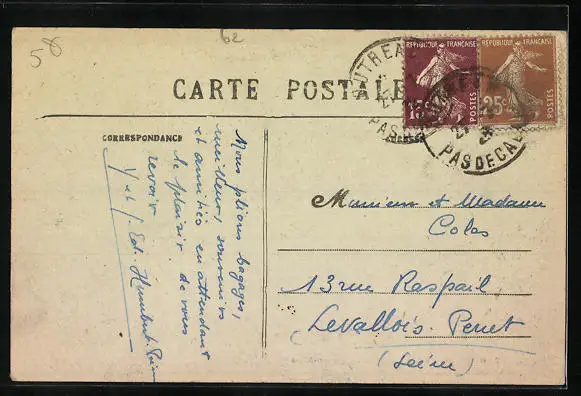 58
62
CARTE POSTALE
CORRESPONDANCE
REPUBLIQUE FRANÇAISE
15c
POSTES
REPUBLIQUE FRANÇAISE
25c
POSTES
OUTREAU
PAS
PAS DE CALAIS
Nous plions bagages,
meilleurs souvenirs
et amitiés en attendant
le plaisir de vous
revoir
Monsieur et Madame
Colas
13 rue Raspail
Levallois-Perret
(Seine)